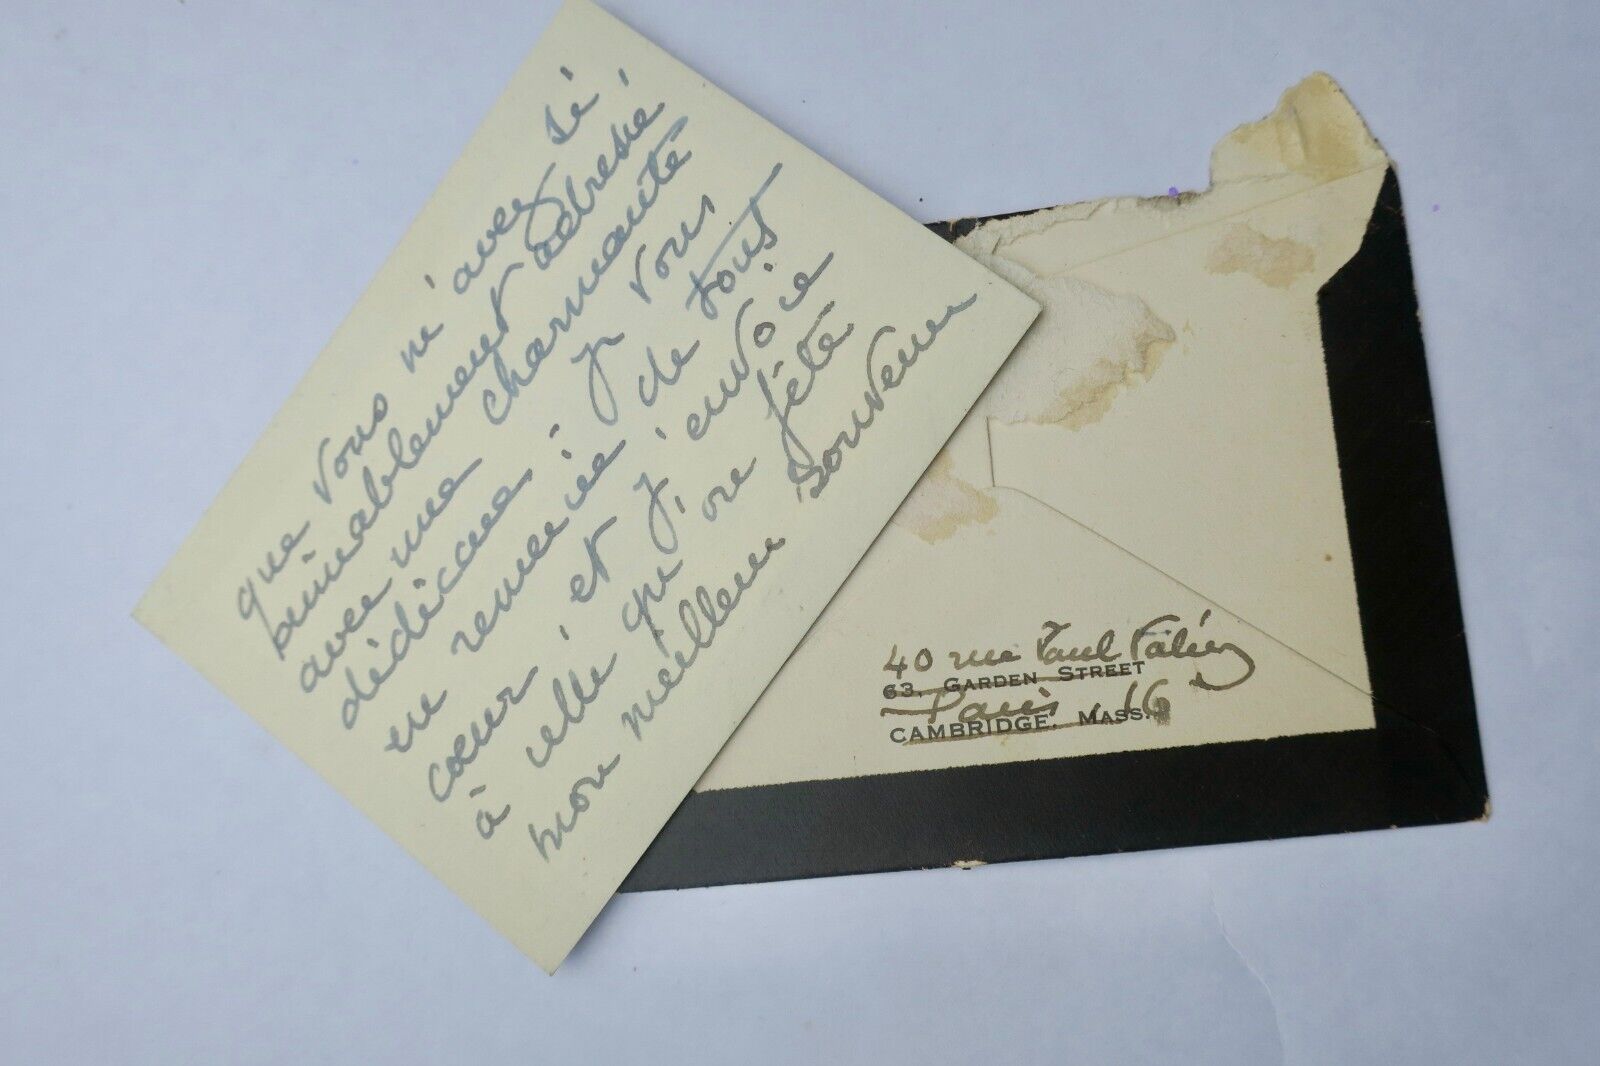 que vous m'avez si
aimablement adressé
avec une charmante
dédicace. Je vous
en remercie de tout
cœur, et j'envoie
à celle qu'on fête
mon meilleur souvenir
40 rue Paul Valéry
63, GARDEN STREET
Paris 16
CAMBRIDGE, MASS.